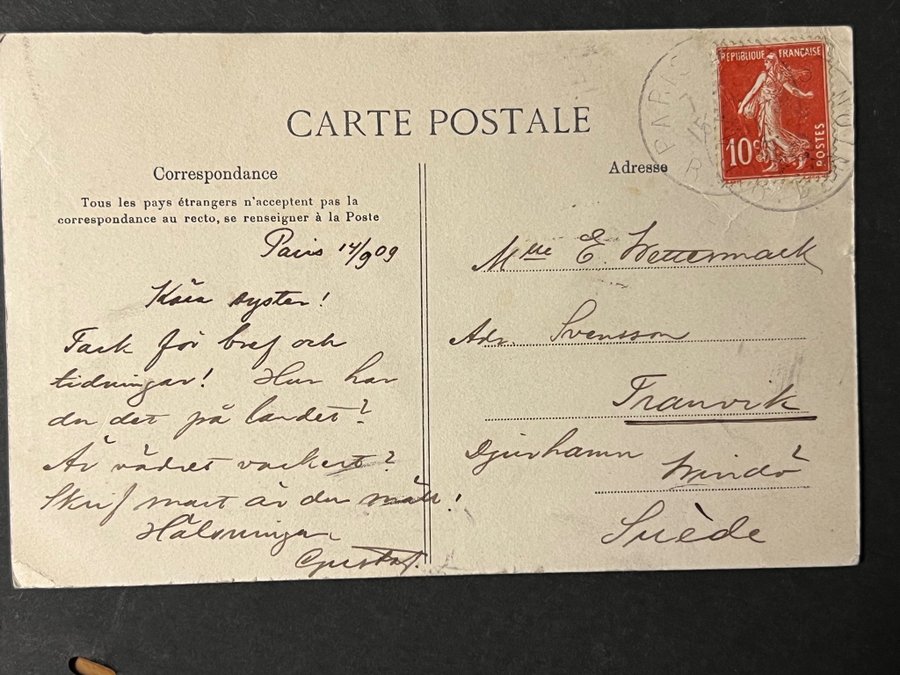 CARTE POSTALE
Correspondance
Tous les pays étrangers n'acceptent pas la
correspondance au recto, se renseigner à la Poste
Paris 14/9 09
Kära syster!
Tack för bref och
tidningar! Hur har
du det på landet?
Är vädret vackert?
Skrif snart är du snäll!
Hälsningar
Gustaf.
Adresse
Mlle E. Wettermark
Adr. Svensson
Tranvik
Djurhamn
Windö
Suède
RÉPUBLIQUE FRANÇAISE
10c
POSTES
PARIS